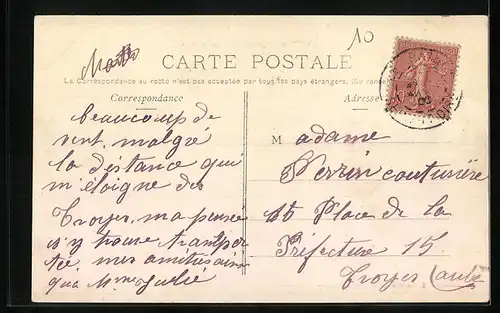 10
Marthe
CARTE POSTALE
La Correspondance au recto n'est pas acceptée par tous les pays étrangers. (Se renseigner
Correspondance
Adresse
beaucoup de
vent. malgré
la distance qui
m'éloigne des
Troyes. ma pensée
s'y trouve tranSpor
tée. mes amitiés ainsi
que Mme Julie
Madame
Perrin couturière
Place de la
Préfecture 15
Troyes (aube